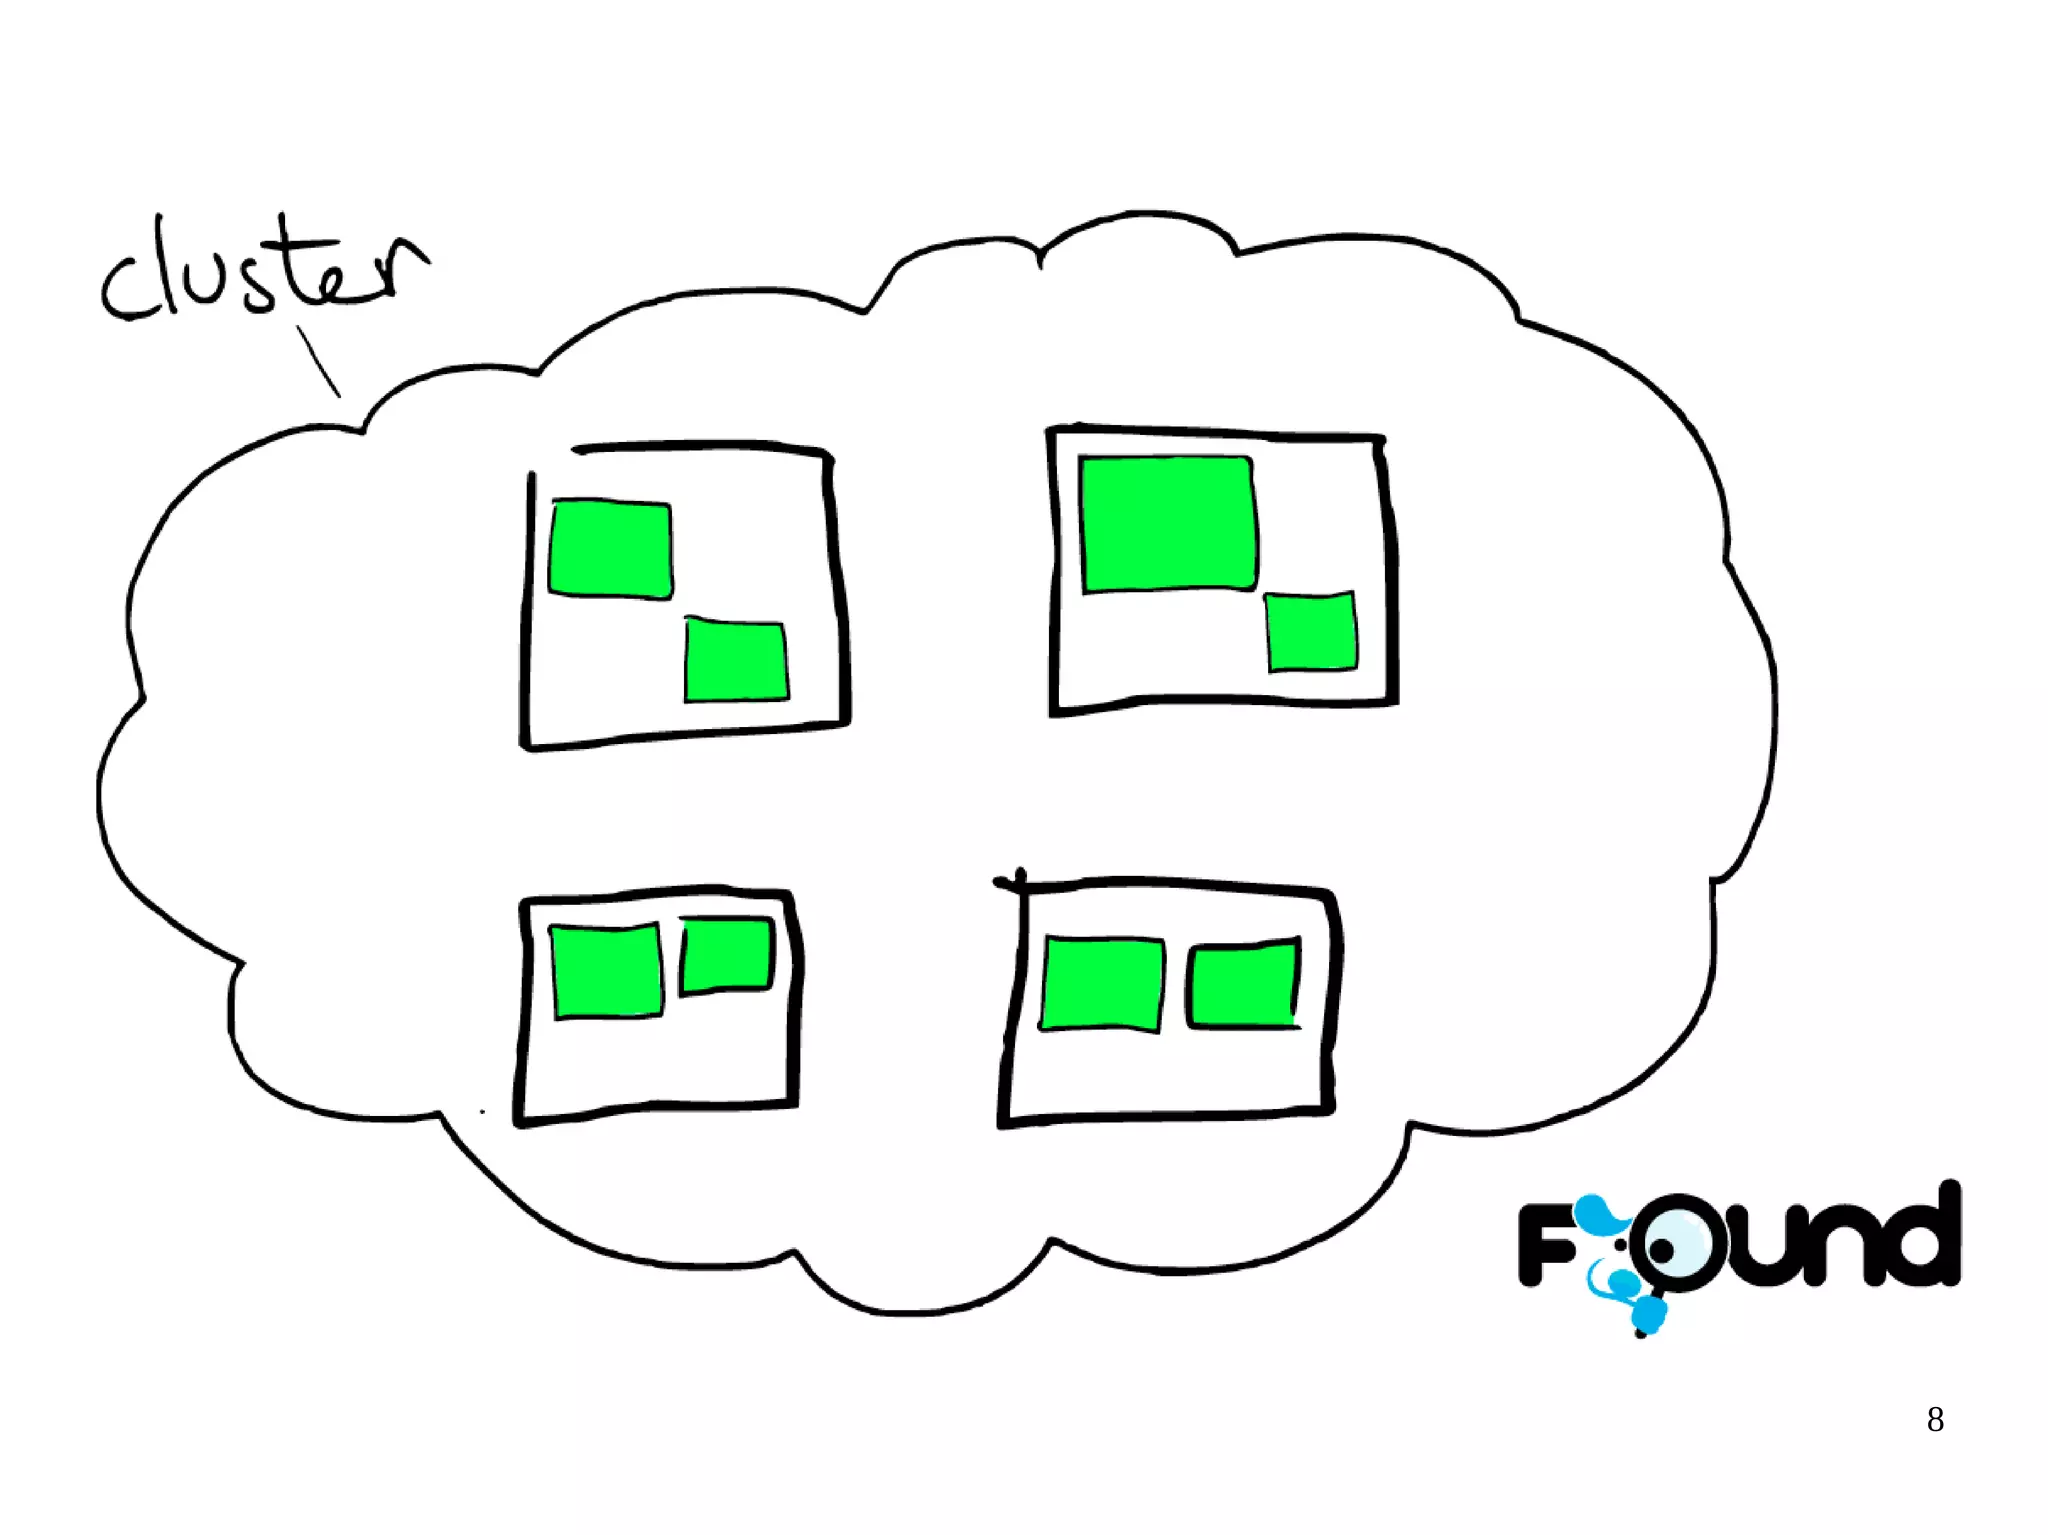 cluster
Found
8